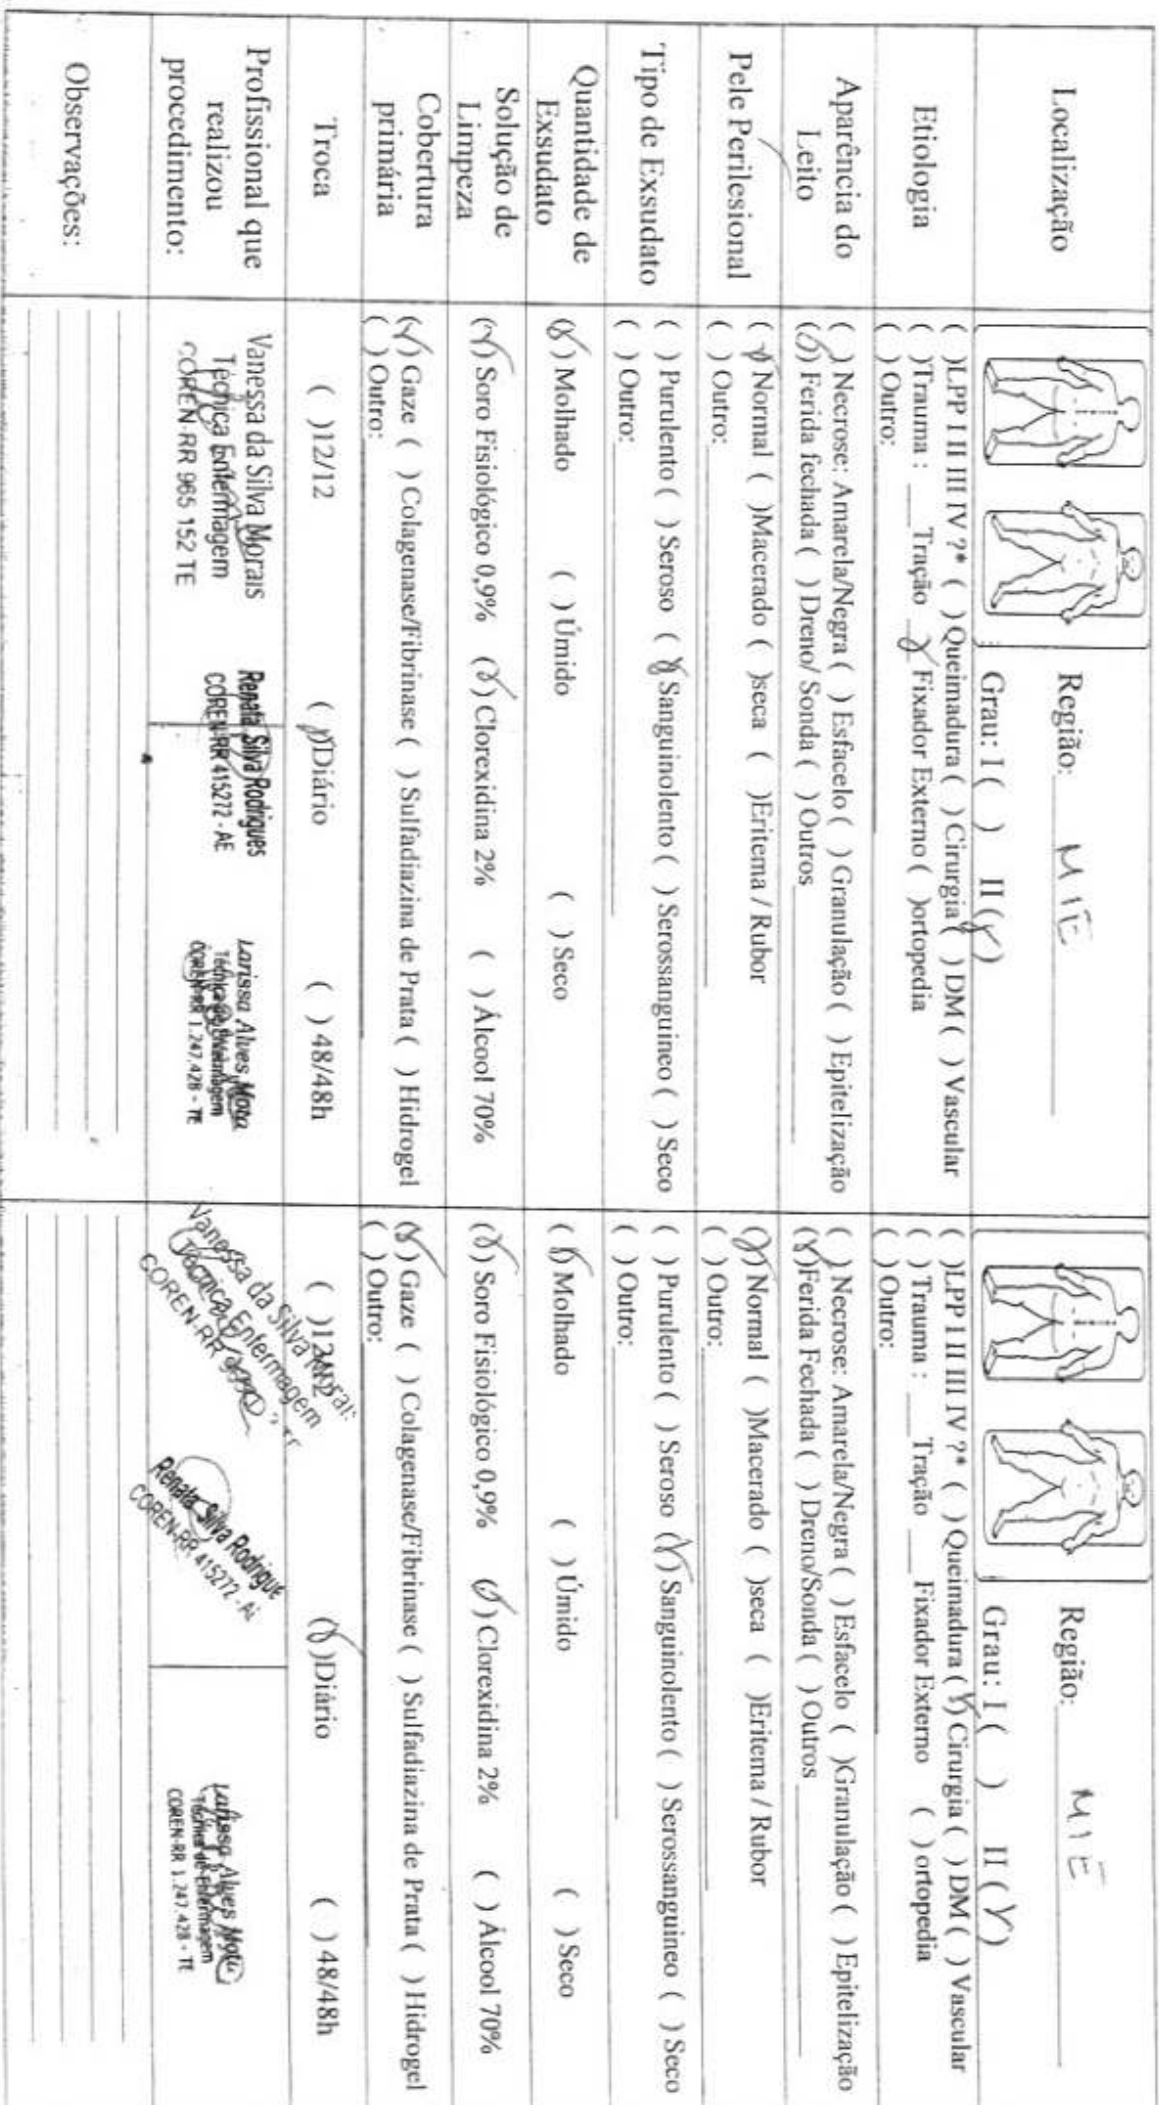 Localização
Região: MIE
Grau: I ( ) II (X)
Região: MIE
Grau: I ( ) II (X)
Etiologia
( )LPP I II III IV ?* ( ) Queimadura ( ) Cirurgia ( ) DM ( ) Vascular
( )Trauma : ___ Tração _X_ Fixador Externo ( )ortopedia
( ) Outro:
( )LPP I II III IV ?* ( ) Queimadura (X) Cirurgia ( ) DM ( ) Vascular
( ) Trauma : ___ Tração ___ Fixador Externo ( ) ortopedia
( ) Outro:
Aparência do
Leito
( ) Necrose: Amarela/Negra ( ) Esfacelo ( ) Granulação ( ) Epitelização
(X) Ferida fechada ( ) Dreno/ Sonda ( ) Outros
( ) Necrose: Amarela/Negra ( ) Esfacelo ( )Granulação ( ) Epitelização
(X)Ferida Fechada ( ) Dreno/Sonda ( ) Outros
Pele Perilesional
(X)Normal ( )Macerado ( )seca ( )Eritema / Rubor
( ) Outro:
(X)Normal ( )Macerado ( )seca ( )Eritema / Rubor
( ) Outro:
Tipo de Exsudato
( ) Purulento ( ) Seroso (X) Sanguinolento ( ) Serossanguineo ( ) Seco
( ) Outro:
( ) Purulento ( ) Seroso (X) Sanguinolento ( ) Serossanguineo ( ) Seco
( ) Outro:
Quantidade de
Exsudato
(X) Molhado ( ) Úmido ( ) Seco
(X) Molhado ( ) Úmido ( ) Seco
Solução de
Limpeza
(X) Soro Fisiológico 0,9% (X) Clorexidina 2% ( ) Álcool 70%
(X) Soro Fisiológico 0,9% (X) Clorexidina 2% ( ) Álcool 70%
Cobertura
primária
(X) Gaze ( ) Colagenase/Fibrinase ( ) Sulfadiazina de Prata ( ) Hidrogel
( ) Outro:
(X) Gaze ( ) Colagenase/Fibrinase ( ) Sulfadiazina de Prata ( ) Hidrogel
( ) Outro:
Troca
( )12/12 (X)Diário ( ) 48/48h
( )12/12 (X)Diário ( ) 48/48h
Profissional que
realizou
procedimento:
Vanessa da Silva Morais
Técnica Enfermagem
COREN-RR 965 152 TE
Renata Silva Rodrigues
COREN-RR 415272 - AE
Larissa Alves Mota
Técnica de Enfermagem
COREN-RR 1.247.428 - TE
Vanessa da Silva Morais
Técnica Enfermagem
COREN-RR
Renata Silva Rodrigue
COREN-RR 415272 - A
Larissa Alves Mota
Técnica de Enfermagem
COREN-RR 1.247.428 - TE
Observações: